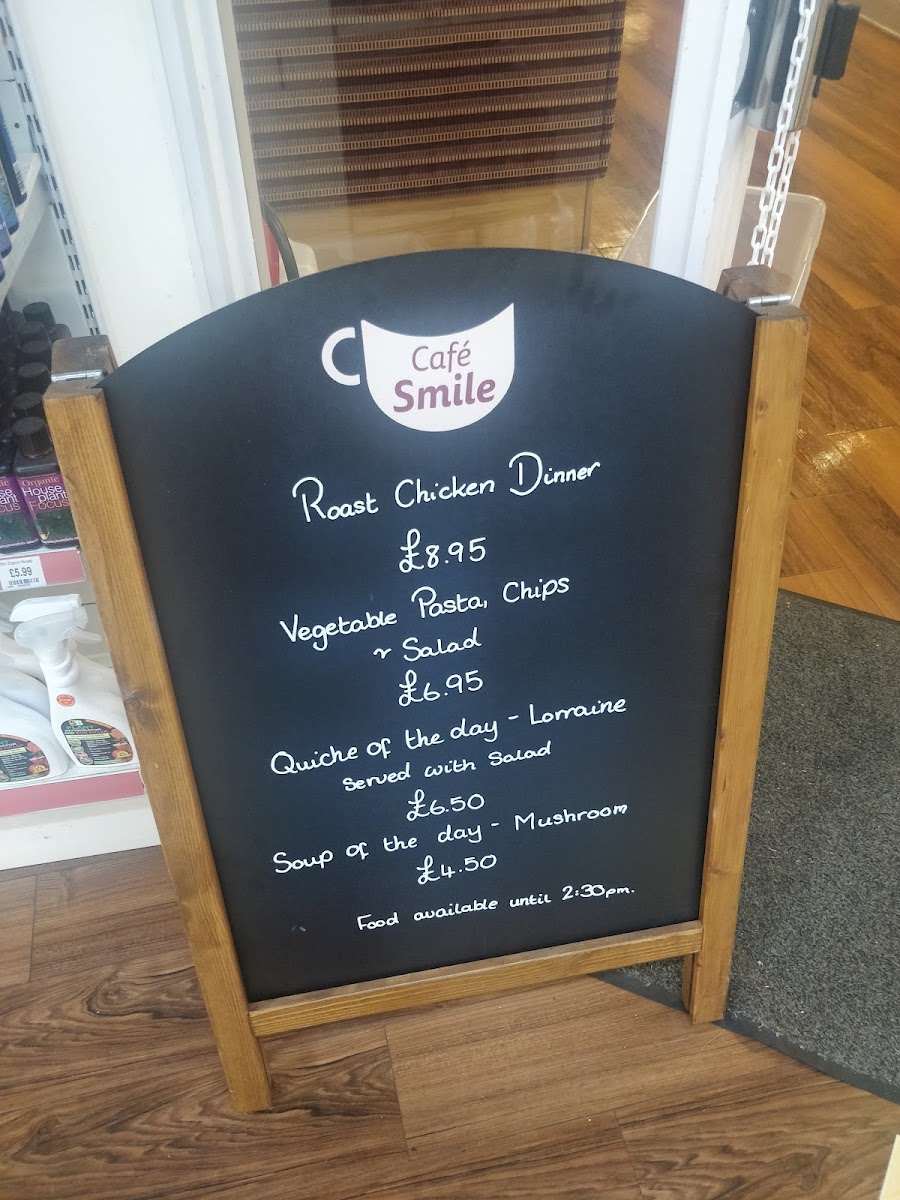 Café
Smile
Roast Chicken Dinner
£8.95
Vegetable Pasta, Chips
& Salad
£6.95
Quiche of the day - Lorraine
Served with Salad
£6.50
Soup of the day - Mushroom
£4.50
Food available until 2:30pm.
Organic
House
plant
Focus
£5.99